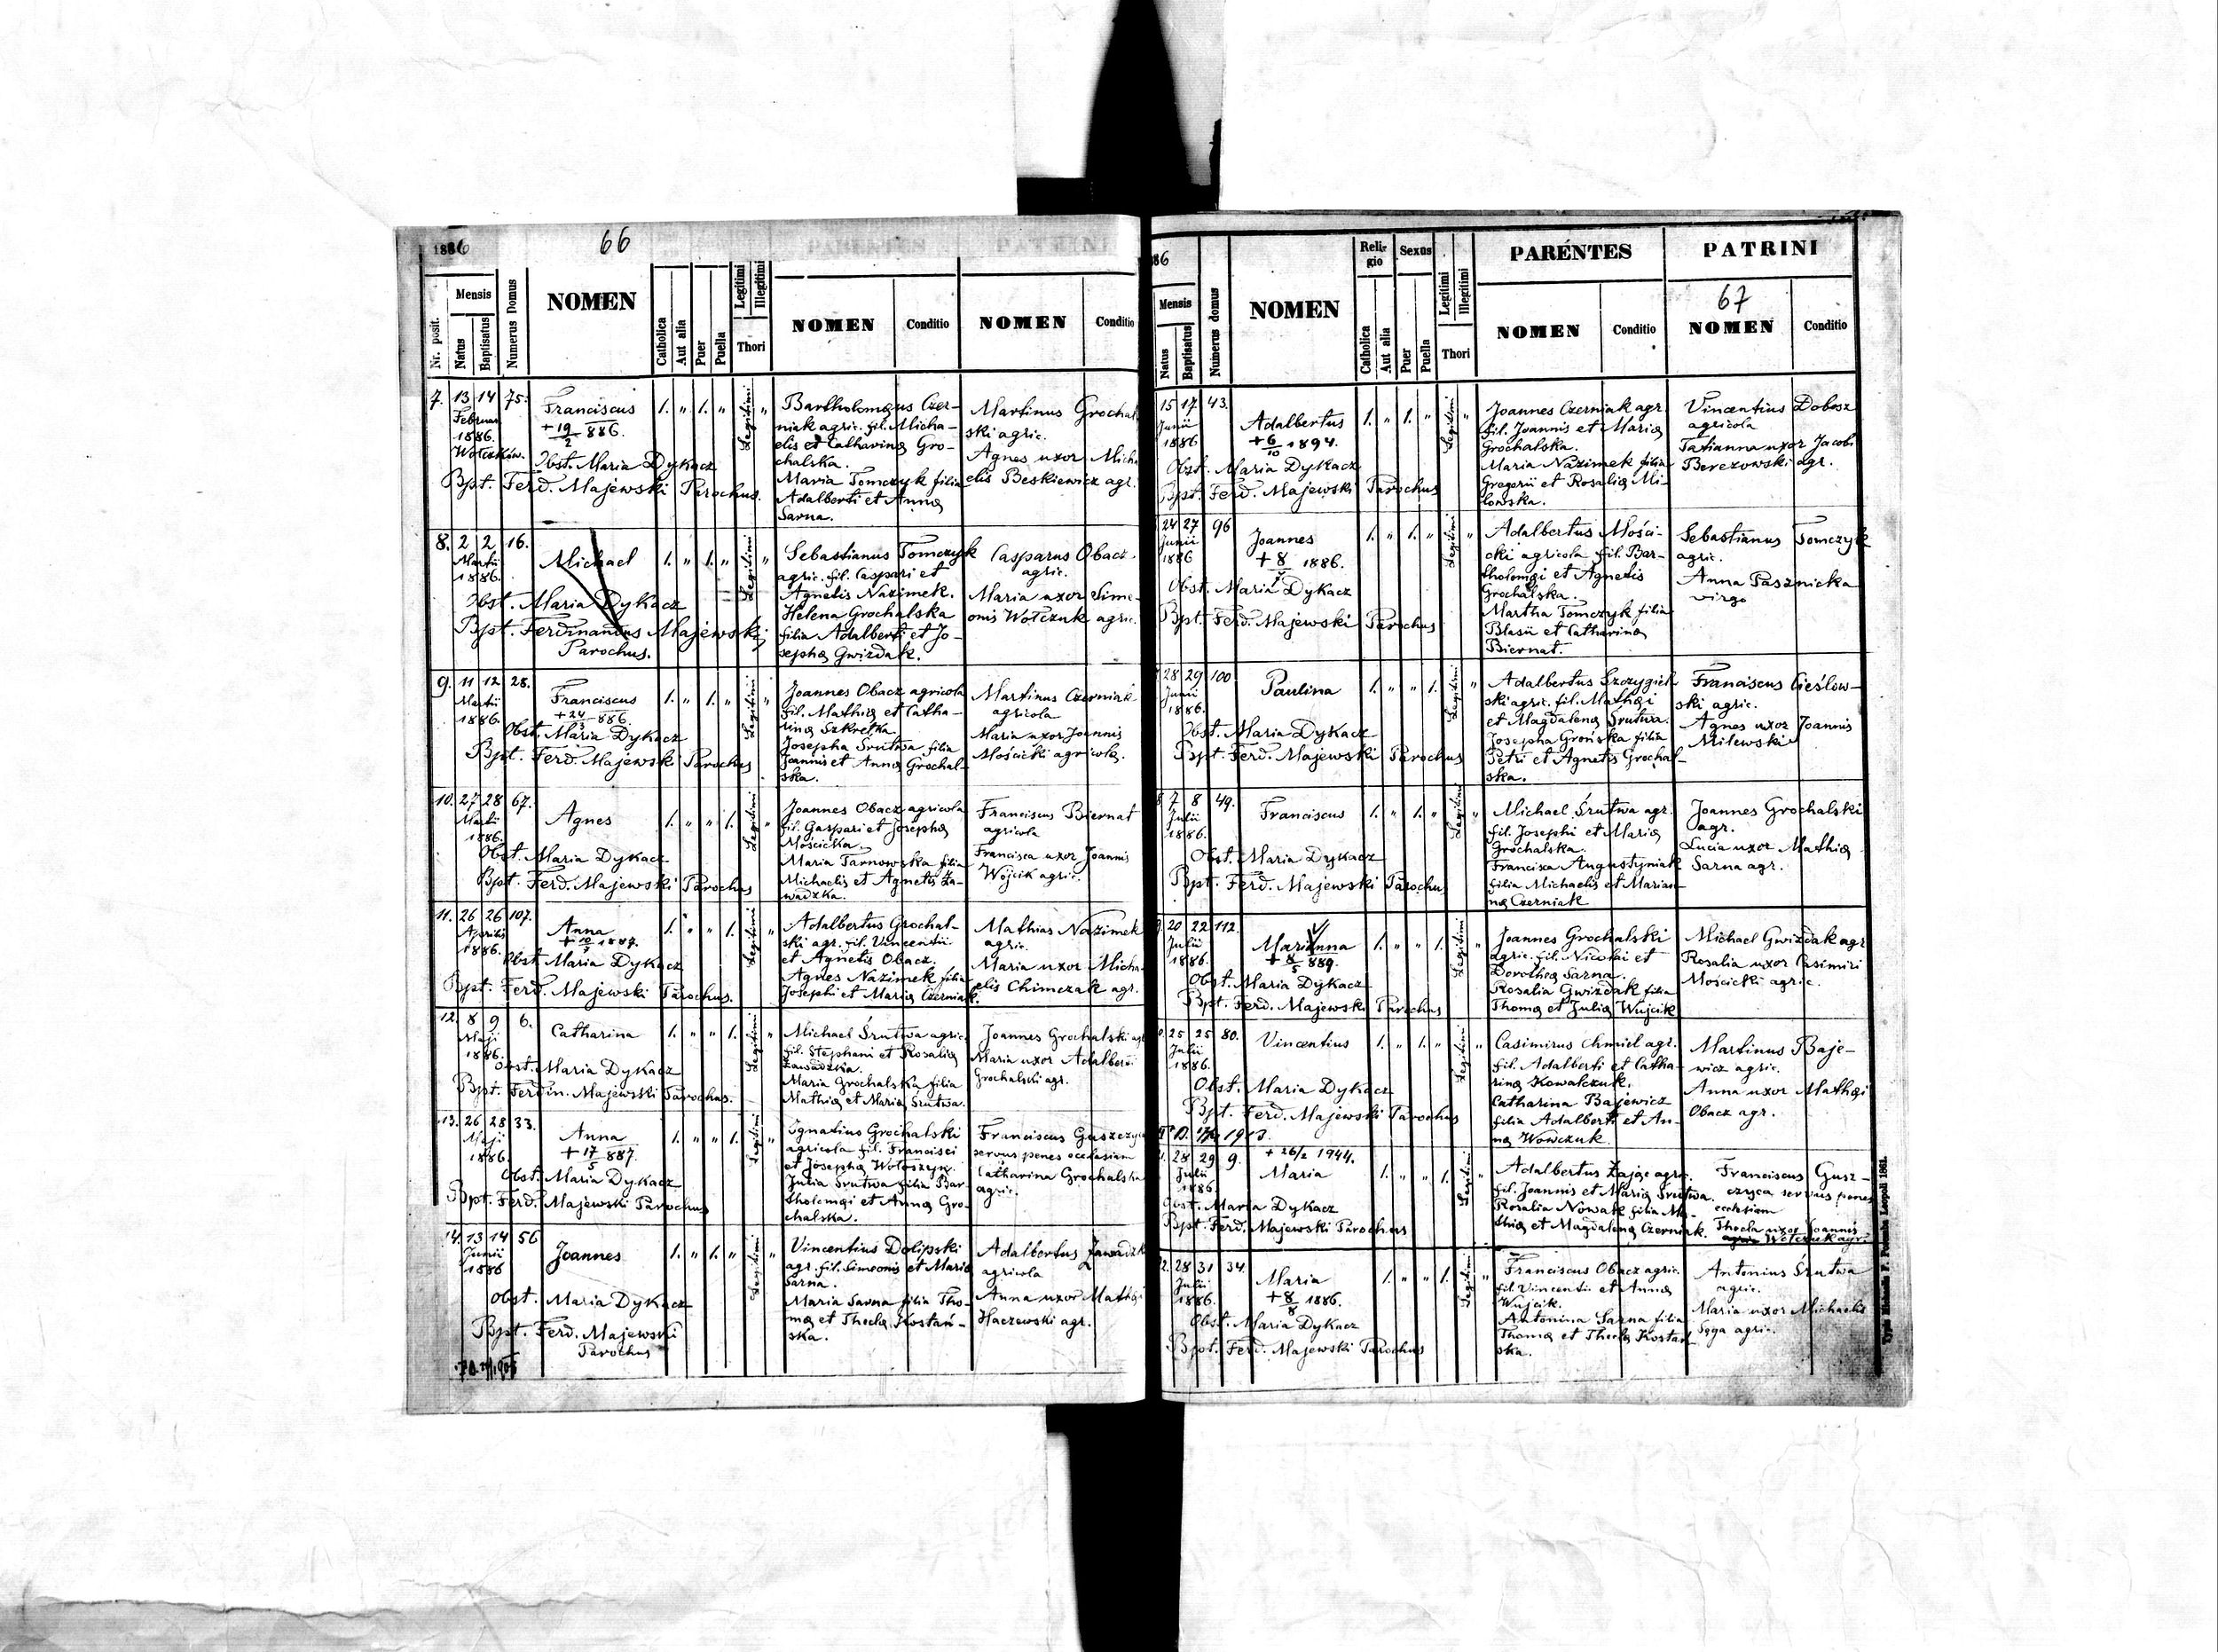 1886
66
Nr. posit.
Mensis
Natus
Baptisatus
Numerus Domus
NOMEN
Catholica
Aut alia
Puer
Puella
Legitimi
Illegitimi
Thori
PARENTES
NOMEN
Conditio
PATRINI
NOMEN
Conditio
7. 13 14 75.
Februar
1886.
Wołczków.
Franciscus
+ 19/2 886.
Obst. Maria Dykacz
Bpt. Ferd. Majewski Parochus.
1. " 1. " Legitimi "
Bartholomæus Czer-
niak agric. fil. Micha-
elis et Catharinæ Gro-
chalska.
Maria Tomczyk filia
Adalberti et Annæ
Sarna.
Martinus Grochal
ski agric.
Agnes uxor Micha
elis Beskiewicz agr.
8. 2 2 16.
Martii
1886.
Michael
Obst. Maria Dykacz
Bpt. Ferdinandus Majewski
Parochus.
1. " 1. " Legitimi "
Sebastianus Tomczyk
agric. fil. Caspari et
Agnetis Nazimek.
Helena Grochalska
filia Adalberti et Jo-
sephæ Gwizdak.
Casparus Obacz
agric.
Maria uxor Sime-
onis Wołczuk agric.
9. 11 12 28.
Martii
1886.
Franciscus
+ 24/03 886.
Obst. Maria Dykacz
Bpt. Ferd. Majewski Parochus
1. " 1. " Legitimi "
Joannes Obacz agricola
fil. Mathiæ et Catha-
rinæ Szkretka.
Josepha Śrutwa filia
Joannis et Annæ Grochal-
ska.
Martinus Czerniak
agricola
Maria uxor Joannis
Mościcki agricolæ.
10. 27 28 67.
Martii
1886.
Agnes
Obst. Maria Dykacz
Bpt. Ferd. Majewski Parochus
1. " " 1. Legitimi "
Joannes Obacz agricola
fil. Gaspari et Josephæ
Mościcka.
Maria Tarnowska filia
Michaelis et Agnetis Za-
wadzka.
Franciscus Biernat
agricola
Francisca uxor Joannis
Wójcik agric.
11. 26 26 107.
Aprilis
1886.
Anna
1887.
Obst. Maria Dykacz
Bpt. Ferd. Majewski Parochus.
1. " " 1. Legitimi "
Adalbertus Grochal-
ski agr. fil. Vincentii
et Agnetis Obacz.
Agnes Nazimek filia
Josephi et Mariæ Czerniak.
Mathias Nazimek
agric.
Maria uxor Micha-
elis Chimczak agr.
12. 8 9 6.
Maji
1886.
Catharina
Obst. Maria Dykacz
Bpt. Ferdin. Majewski Parochus.
1. " " 1. Legitimi "
Michael Śrutwa agric.
fil. Stephani et Rosaliæ
Zawadzka.
Maria Grochalska filia
Mathiæ et Mariæ Śrutwa.
Joannes Grochalski agr
Maria uxor Adalberti
Grochalski agr.
13. 26 28 33.
Maji
1886.
Anna
+ 17/5 887.
Obst. Maria Dykacz
Bpt. Ferd. Majewski Parochus
1. " " 1. Legitimi "
Ignatius Grochalski
agricola fil. Francisci
et Josephæ Wołoszyn.
Julia Śrutwa filia Bar-
tholomæi et Annæ Gro-
chalska.
Franciscus Guszczy
servus penes ecclesiam
Catharina Grochalska
agric.
14. 13 14 56
Junii
1886
Joannes
Obst. Maria Dykacz
Bpt. Ferd. Majewski
Parochus
1. " 1. " Legitimi "
Vincentius Dolipski
agr. fil. Simeonis et Mariæ
Sarna.
Maria Sarna filia Tho-
mæ et Theclæ Kostań-
ska.
Adalbertus Zawadzk
agricola
Anna uxor Mathæi
Haczewski agr.
86
Mensis
Natus
Baptisatus
Numerus domus
NOMEN
Religio
Catholica
Aut alia
Sexus
Puer
Puella
Legitimi
Illegitimi
Thori
PARENTES
NOMEN
Conditio
PATRINI
67
NOMEN
Conditio
15 17 43.
Junii
1886
Adalbertus
+ 6/10 1894.
Obst. Maria Dykacz
Bpt. Ferd. Majewski Parochus
1. " 1. " Legitimi "
Joannes Czerniak agr.
fil. Joannis et Mariæ
Grochalska.
Maria Nazimek filia
Gregorii et Rosaliæ Mi-
lowska.
Vincentius Dobosz
agricola
Tatianna uxor Jacobi
Berezowski agr.
24 27 96
Junii
1886
Joannes
+ 8 1886.
Obst. Maria Dykacz
Bpt. Ferd. Majewski Parochus
1. " 1. " Legitimi "
Adalbertus Mości-
cki agricola fil. Bar-
tholomæi et Agnetis
Grochalska.
Martha Tomczyk filia
Blasii et Catharinæ
Biernat.
Sebastianus Tomczyk
agric.
Anna Pasznicka
virgo
28 29 100
Junii
1886.
Paulina
Obst. Maria Dykacz
Bpt. Ferd. Majewski Parochus
1. " " 1. Legitimi "
Adalbertus Szczygiel-
ski agric. fil. Mathæi
et Magdalenæ Śrutwa.
Josepha Grońska filia
Petri et Agnetis Grochal-
ska.
Franciscus Cieślow-
ski agric.
Agnes uxor Joannis
Milewski
7 8 49.
Julii
1886.
Franciscus
Obst. Maria Dykacz
Bpt. Ferd. Majewski Parochu
1. " 1. " Legitimi "
Michael Śrutwa agr.
fil. Josephi et Mariæ
Grochalska.
Francisca Augustyniak
filia Michaelis et Marian-
næ Czerniak
Joannes Grochalski
agr.
Lucia uxor Mathiæ
Sarna agr.
20 22 112.
Julii
1886.
Marianna
+ 8/5 889.
Obst. Maria Dykacz
Bpt. Ferd. Majewski Parochus
1. " " 1. Legitimi "
Joannes Grochalski
agric. fil. Nicolai et
Dorotheæ Sarna.
Rosalia Gwizdak filia
Thomæ et Juliæ Wujcik
Michael Gwizdak agr
Rosalia uxor Casimiri
Mościcki agric.
25 25 80.
Julii
1886.
Vincentius
Obst. Maria Dykacz
Bpt. Ferd. Majewski Parochus
1. " 1. " Legitimi "
Casimirus Chmiel agr.
fil. Adalberti et Catha-
rinæ Kowalczuk.
Catharina Bajewicz
filia Adalberti et An-
næ Wowczuk.
Martinus Baje-
wicz agric.
Anna uxor Mathæi
Obacz agr.
1913.
28 29 9.
Julii
1886.
+ 26/2 1944.
Maria
Obst. Maria Dykacz
Bpt. Ferd. Majewski Parochus
1. " " 1. Legitimi "
Adalbertus Zając agric.
fil. Joannis et Mariæ Śrutwa.
Rosalia Nowak filia Ma-
thiæ et Magdalenæ Czerniak.
Franciscus Gusz-
czyca servus penes
ecclesiam
Thecla uxor Joannis
28 31 34.
Julii
1886.
Maria
+ 8/8 1886.
Obst. Maria Dykacz
Bpt. Ferd. Majewski Parochus
1. " " 1. Legitimi "
Franciscus Obacz agric.
fil. Vincentii et Annæ
Wujcik.
Antonina Sarna filia
Thomæ et Theclæ Kostań-
ska.
Antonius Śrutwa
agric.
Maria uxor Michaelis
Sęga agric.